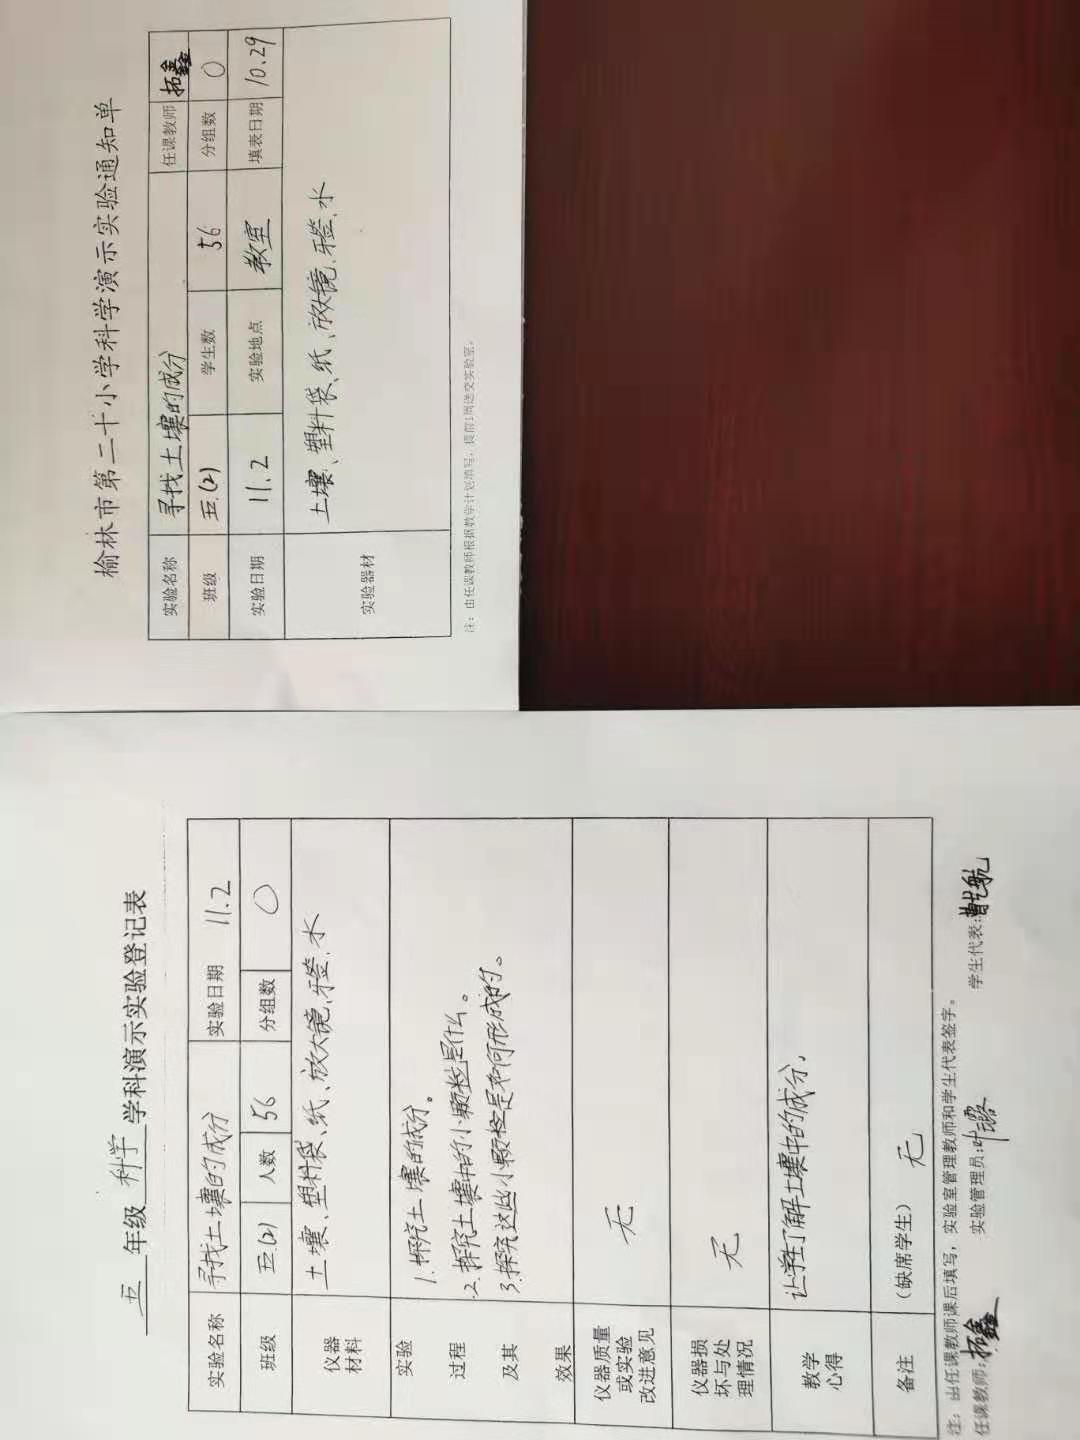 榆林市第二十小学科学演示实验通知单
实验名称 寻找土壤的成分 任课教师 拓鑫
班级 五.(2) 学生数 56 分组数 0
实验日期 11.2 实验地点 教室 填表日期 10.29
实验器材 土壤、塑料袋、纸、放大镜、牙签、水
注：由任课教师根据教学计划填写，提前1周送交实验室。
五 年级 科学 学科演示实验登记表
实验名称 寻找土壤的成分 实验日期 11.2
班级 五.(2) 人数 56 分组数 0
仪器 材料 土壤、塑料袋、纸、放大镜、牙签、水
实验 1.探究土壤的成分。
过程 2.探究土壤中的小颗粒是什么。
及其 3.探究这些小颗粒是如何形成的。
效果
仪器质量
或实验 无
改进意见
仪器损
坏与处 无
理情况
教学
心得 让学生了解土壤中的成分.
备注 （缺席学生） 无
注：由任课教师课后填写，实验室管理教师和学生代表签字。
任课教师:拓鑫 实验管理员:叶露 学生代表:曹艺航